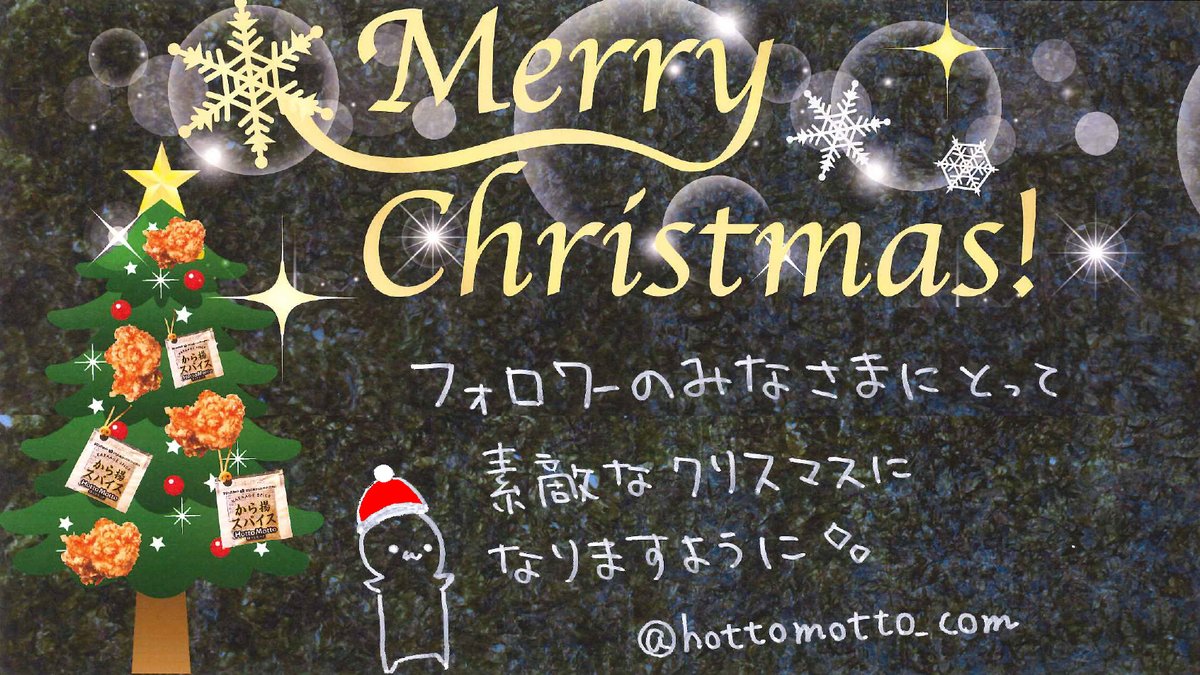 Merry
Christmas!
フォロワーのみなさまにとって
素敵なクリスマスに
なりますように
@hottomotto_com
から揚
スパイス
HottoMotto
KARAAGE SPICE
から揚
スパイス
HottoMotto
KARAAGE SPICE
から揚
スパイス
HottoMotto